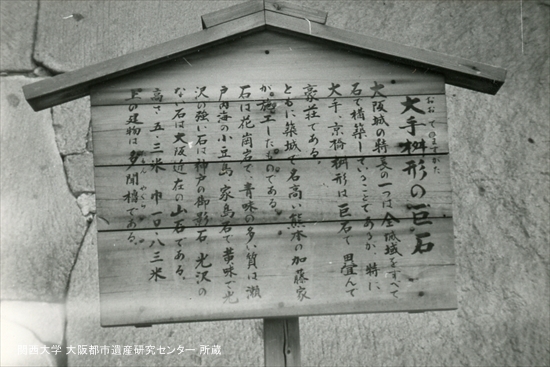 おおてのますがた
大手桝形の巨石
大阪城の特長の一つは全城域をすべて
石で構築していることであるが 特に、
大手、京橋桝形は巨石で 畳んで
豪荘である。
ともに築城で名高い熊本の加藤家
が施工したものである。
石は花崗岩で、青味の多い質は瀬
戸内海の小豆島 家島石で黄味で光
沢の強い石は神戸の御影石 光沢の
ない石は大阪近在の山石である。
高さ五、三米 巾一〇、八三米
上の建物は多聞櫓である。
関西大学 大阪都市遺産研究センター 所蔵